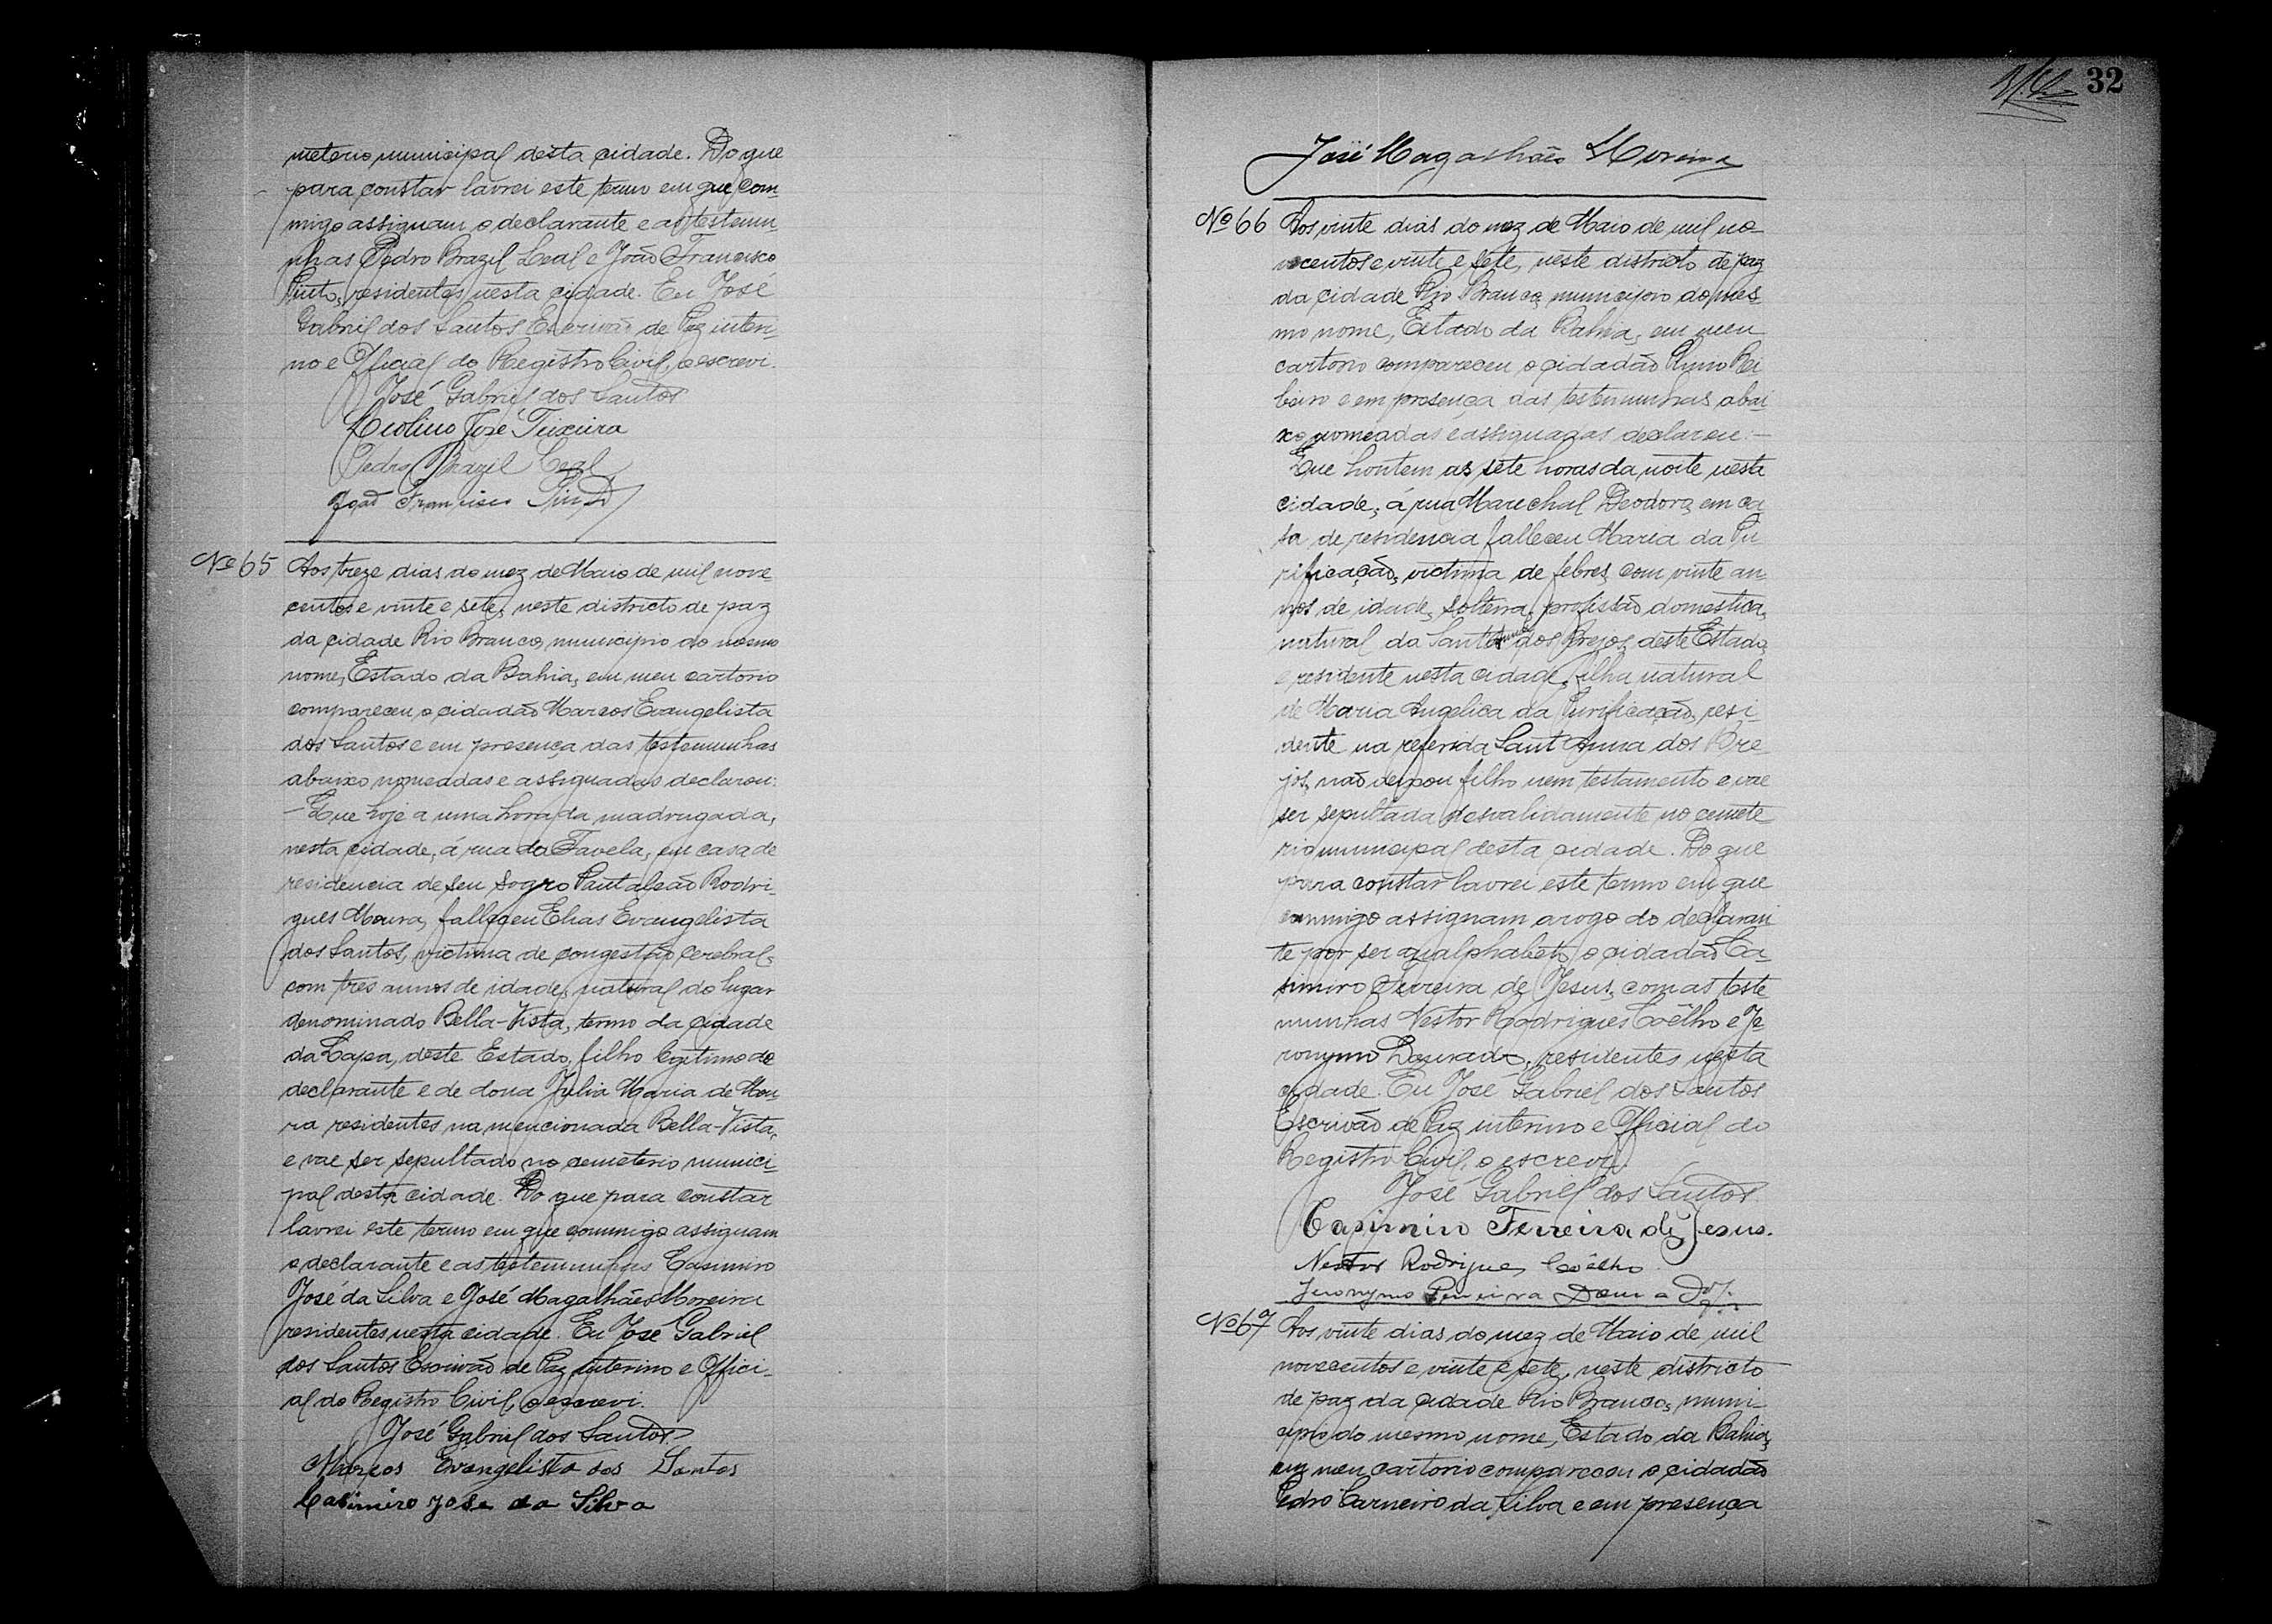 meterio municipal desta cidade. Do que
para constar lavrei este termo em que com-
migo assignam o declarante e as testemu-
nhas Pedro Brazil Leal e João Francisco
Pinto, residentes nesta cidade. Eu José
Gabriel dos Santos Escrivão de Paz interi-
no e Official do Registro Civil, o escrevi.
José Gabriel dos Santos
José Teixeira
Pedro Brazil Leal
João Francisco Pinto
Nº 65 Aos treze dias do mez de Maio de mil nove
centos e vinte e sete, neste districto de paz
da cidade Rio Branco, municipio do mesmo
nome, Estado da Bahia, em meu cartorio
compareceu o cidadão Marcos Evangelista
dos Santos e em presença das testemunhas
abaixo nomeadas e assignadas declarou:
- Que hoje a uma hora da madrugada,
nesta cidade, á rua da Favela, em casa de
residencia de seu sogro Pantaleão Rodri-
gues Moura, falleceu Elias Evangelista
dos Santos, victima de congestão cerebral,
com tres annos de idade, natural do lugar
denominado Bella-Vista, termo da cidade
da Lapa, deste Estado, filho legitimo do
declarante e de dona Julia Maria de Mou-
ra residentes na mencionada Bella-Vista,
e vae ser sepultado no cemeterio munici-
pal desta cidade. Do que para constar
lavrei este termo em que commigo assignam
o declarante e as testemunhas Casimiro
José da Silva e José Magalhães Moreira
residentes nesta cidade. Eu José Gabriel
dos Santos Escrivão de Paz interino e Offici-
al do Registro Civil, o escrevi.
José Gabriel dos Santos
Marcos Evangelista dos Santos
Casimiro José da Silva
32
José Magalhães Moreira
Nº 66 Aos vinte dias do mez de Maio de mil no-
vecentos e vinte e sete, neste districto de paz
da cidade Rio Branco, municipio do mes-
mo nome, Estado da Bahia, em meu
cartorio compareceu o cidadão Ri
beiro e em presença das testemunhas abai-
xo nomeadas e assignadas declarou:-
Que hontem as sete horas da noite nesta
cidade, á rua Marechal Deodoro, em ca
sa de residencia falleceu Maria da Pu
rificação, victima de febres, com vinte an-
nos de idade, solteira, profissão domestica,
natural da Sant'Anna dos Brejos, deste Estado,
e residente nesta cidade, filha natural
de Maria Angelica da Purificação, resi-
dente na referida Sant'Anna dos Bre
jos, não deixou filho nem testamento e vae
ser sepultada desvalidamente no cemete-
rio municipal desta cidade. Do que
para constar lavrei este termo em que
commigo assignam a rogo do declaran
te por ser analphabeto, o cidadão Ca-
simiro Ferreira de Jesus, com as teste
munhas Nestor Rodrigues Coêlho e Je
ronymo Dourado, residentes nesta
cidade. Eu José Gabriel dos Santos
Escrivão de Paz interino e Official do
Registro Civil, o escrevi.
José Gabriel dos Santos.
Casimiro Ferreira de Jesus.
Nestor Rodrigues Coêlho.
Jeronymo Pereira Dourado
Nº 67 Aos vinte dias do mez de Maio de mil
novecentos e vinte e sete, neste districto
de paz da cidade Rio Branco, muni-
cipio do mesmo nome, Estado da Bahia,
em meu cartorio compareceu o cidadão
Pedro Carneiro da Silva e em presença